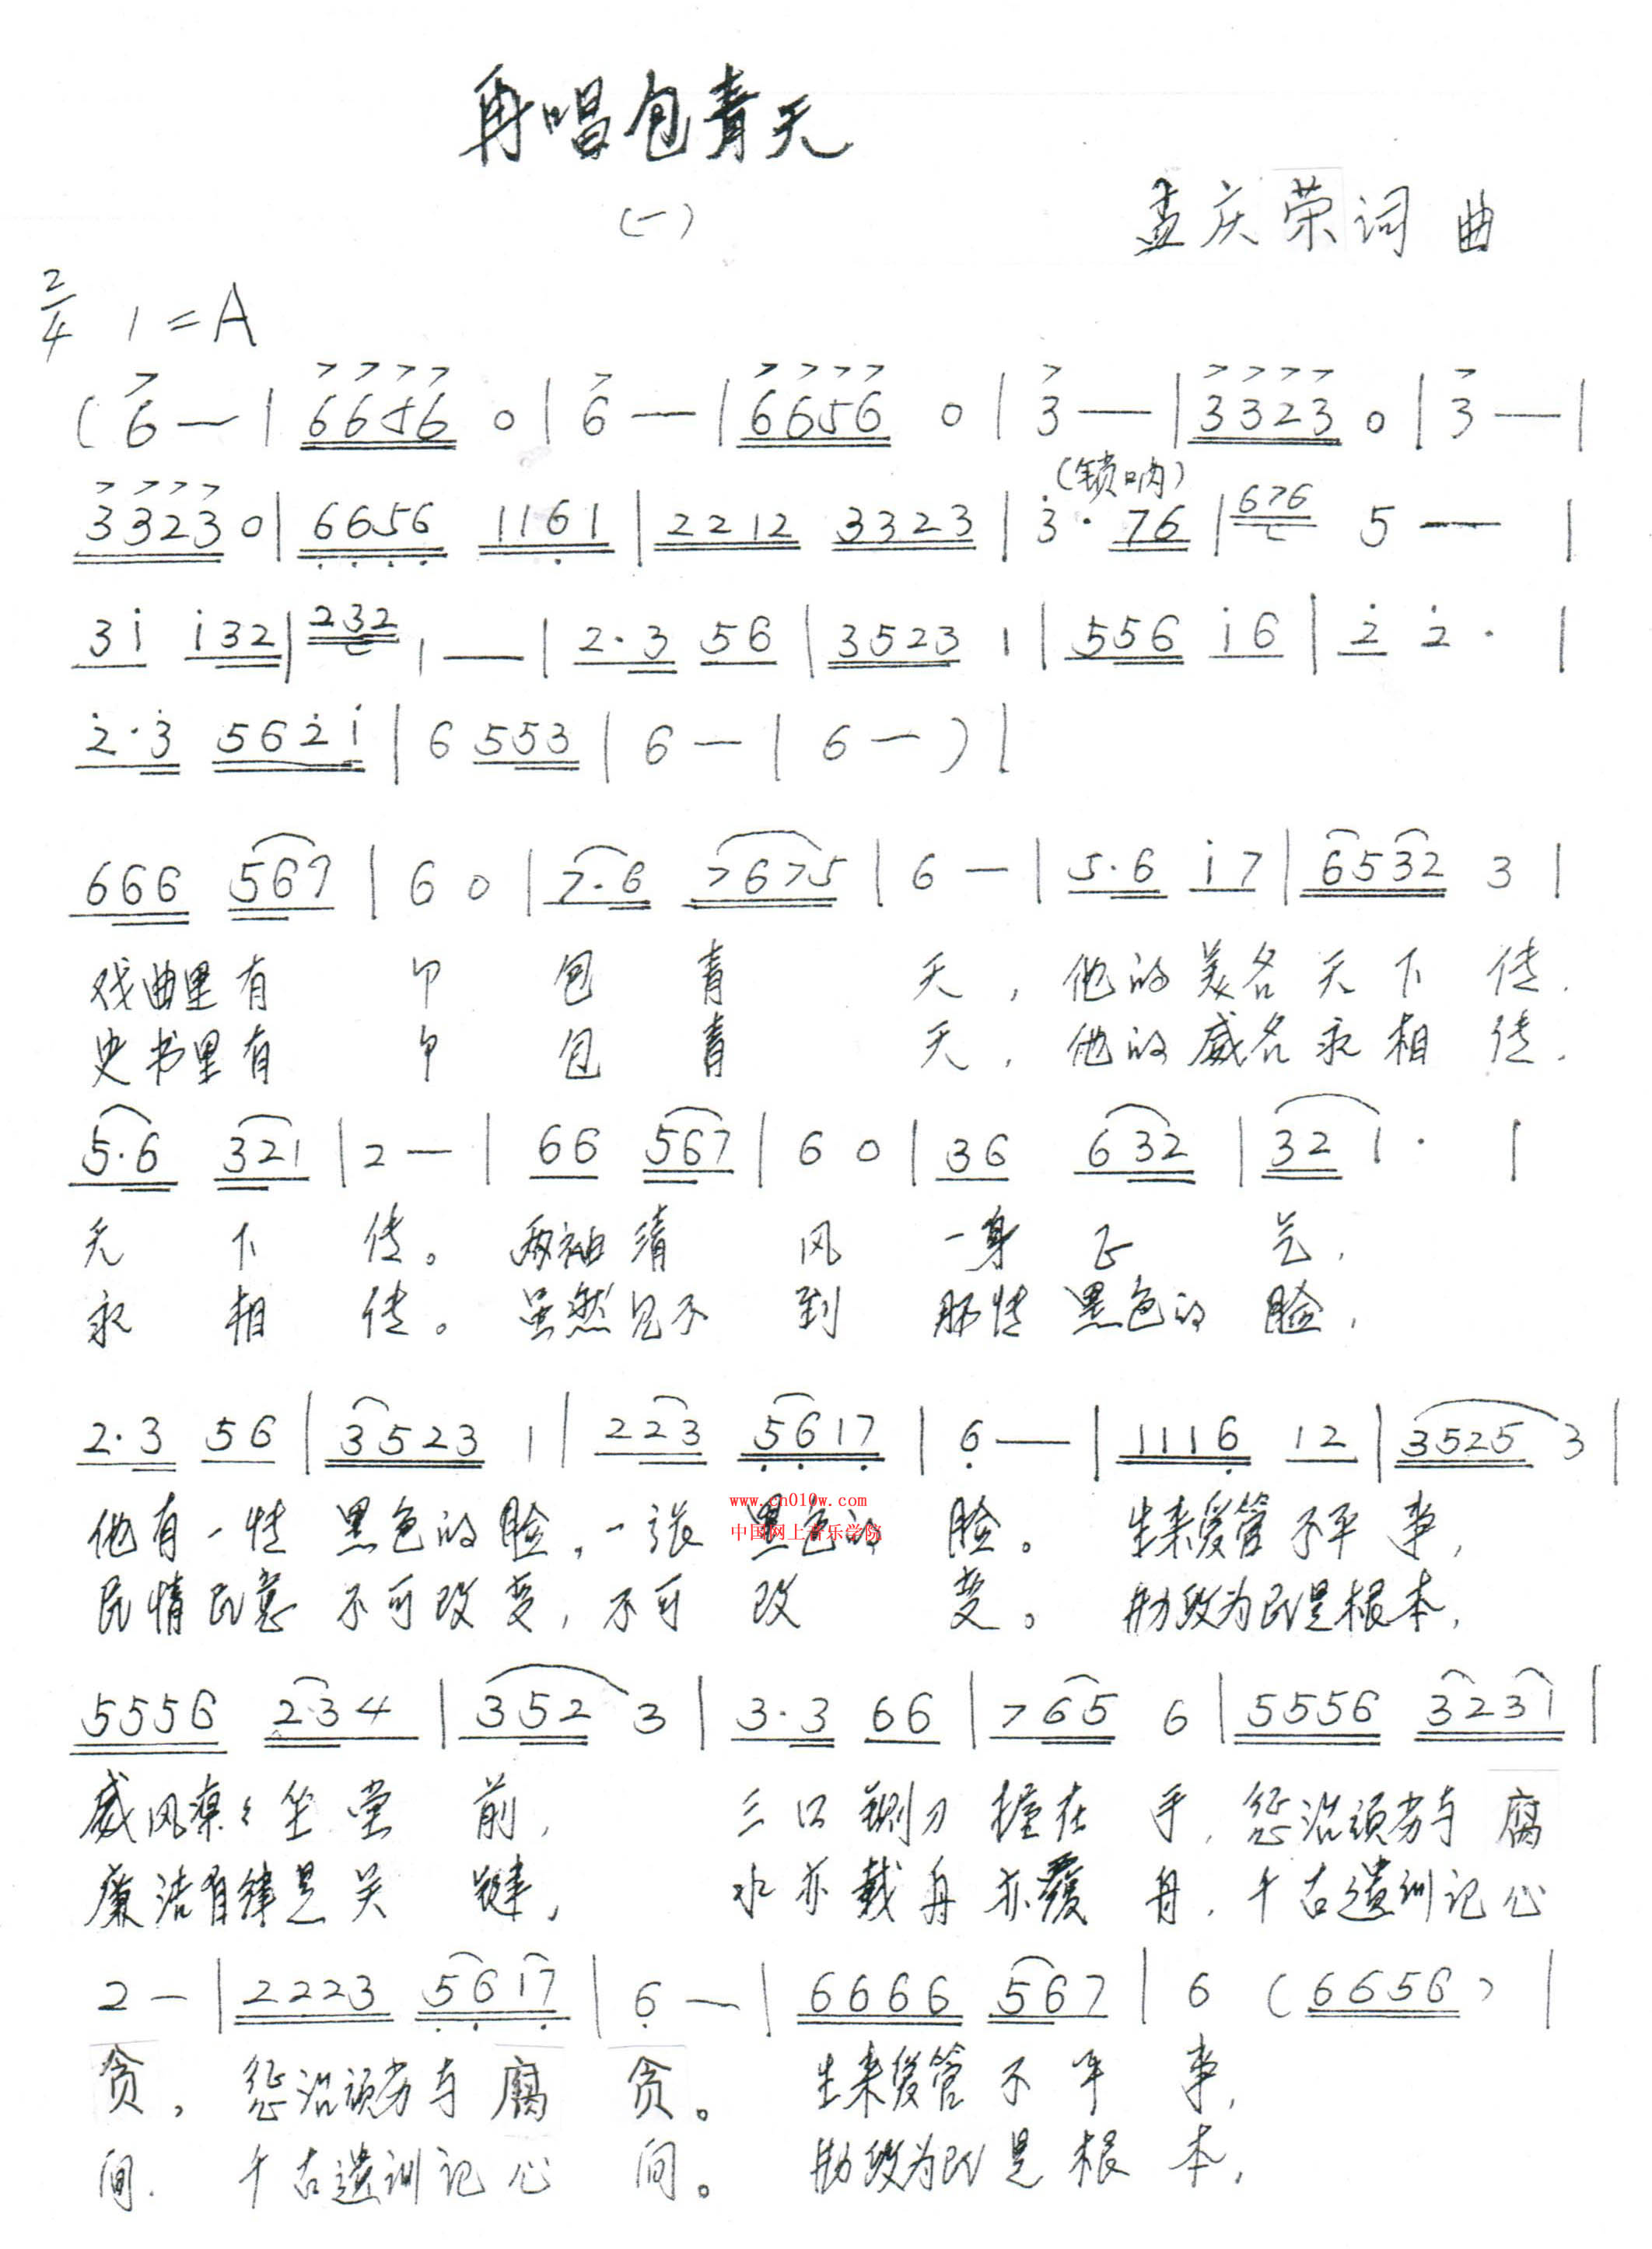 再唱包青天
(一)
孟庆荣词 曲
2/4 1=A
(6 — | 6656 0 | 6 — | 6656 0 | 3 — | 3323 0 | 3 — |
(锁呐)
3323 0 | 6656 1161 | 2212 3323 | 3· 76 | 676 5 — |
3i i32 | 232 1 — | 2·3 56 | 3523 1 | 556 i6 | 2 2· |
2·3 562i | 6 553 | 6 — | 6 — ) |
666 567 | 6 0 | 7·6 7675 | 6 — | 5·6 i7 | 6532 3 |
戏曲里有 个 包 青 天, 他的美名天下传.
史书里有 个 包 青 天, 他的威名永相传.
5·6 321 | 2 — | 66 567 | 6 0 | 36 632 | 32 1· |
天 下 传。 两袖清 风 一身正 气,
永 相 传。 虽然见不 到 那 黑色的 脸,
2·3 56 | 3523 1 | 223 5617 | 6 — | 1116 12 | 3525 3 |
www.cn010w.com
中国网上音乐学院
他有一 黑色的脸,一张 黑色的 脸。 生来爱管不平事,
民情民意 不可改变,不可 改 变。 勤政为民是根本,
5556 234 | 352 3 | 3·3 66 | 765 6 | 5556 323i |
威风凛々坐堂 前, 三口铡刀握在 手, 惩治顽劣与 腐
廉洁自律是关 键, 水亦载舟亦覆 舟, 千古遗训记心
2 — | 2223 5617 | 6 — | 6666 567 | 6 (6656) |
贪, 惩治顽劣与 腐 贪。 生来爱管不平 事,
间. 千古遗训记心 间。 勤政为民是根 本,